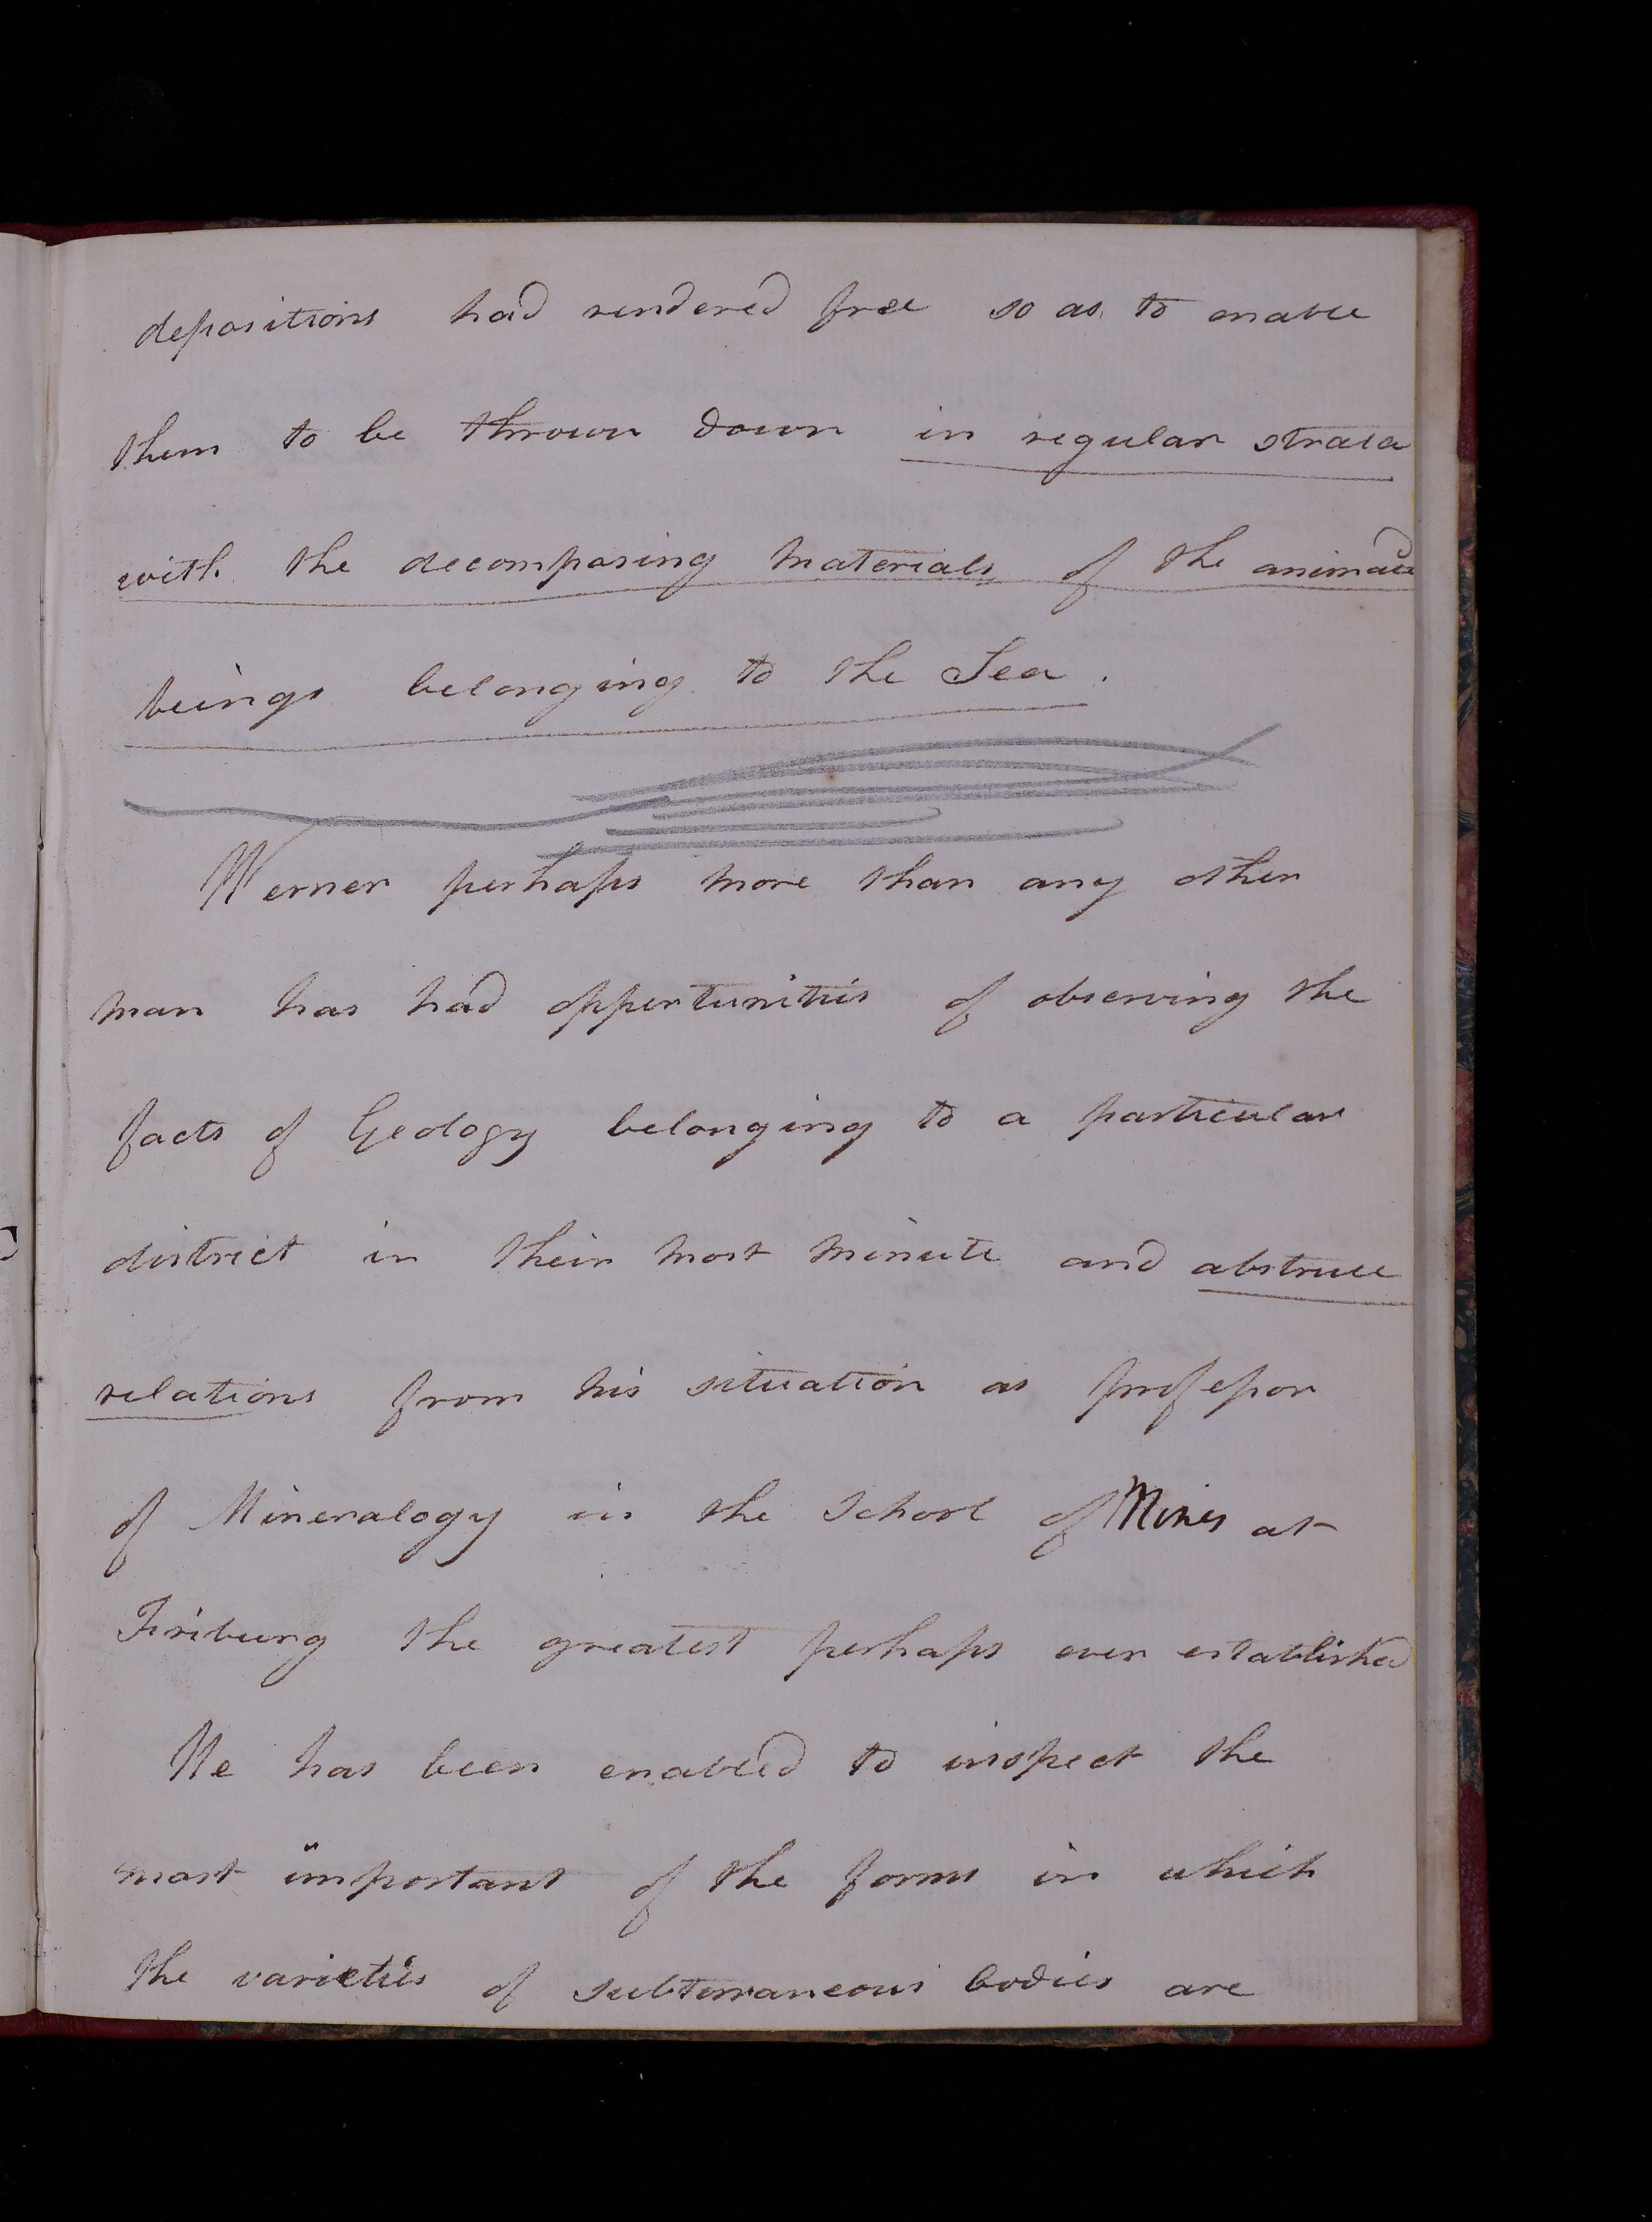 depositions had rendered free so as to enable
them to be thrown down in regular strata
with the decomposing materials of the animated
beings belonging to the Sea.
Werner perhaps more than any other
man has had oppertunities of observing the
facts of Geology belonging to a particular
district in their most minute and abstruse
relations from his situation as professor
of Mineralogy in the School of Mines at
Friburg the greatest perhaps ever established
He has been enabled to inspect the
most important of the forms in which
the varieties of subterraneous bodies are